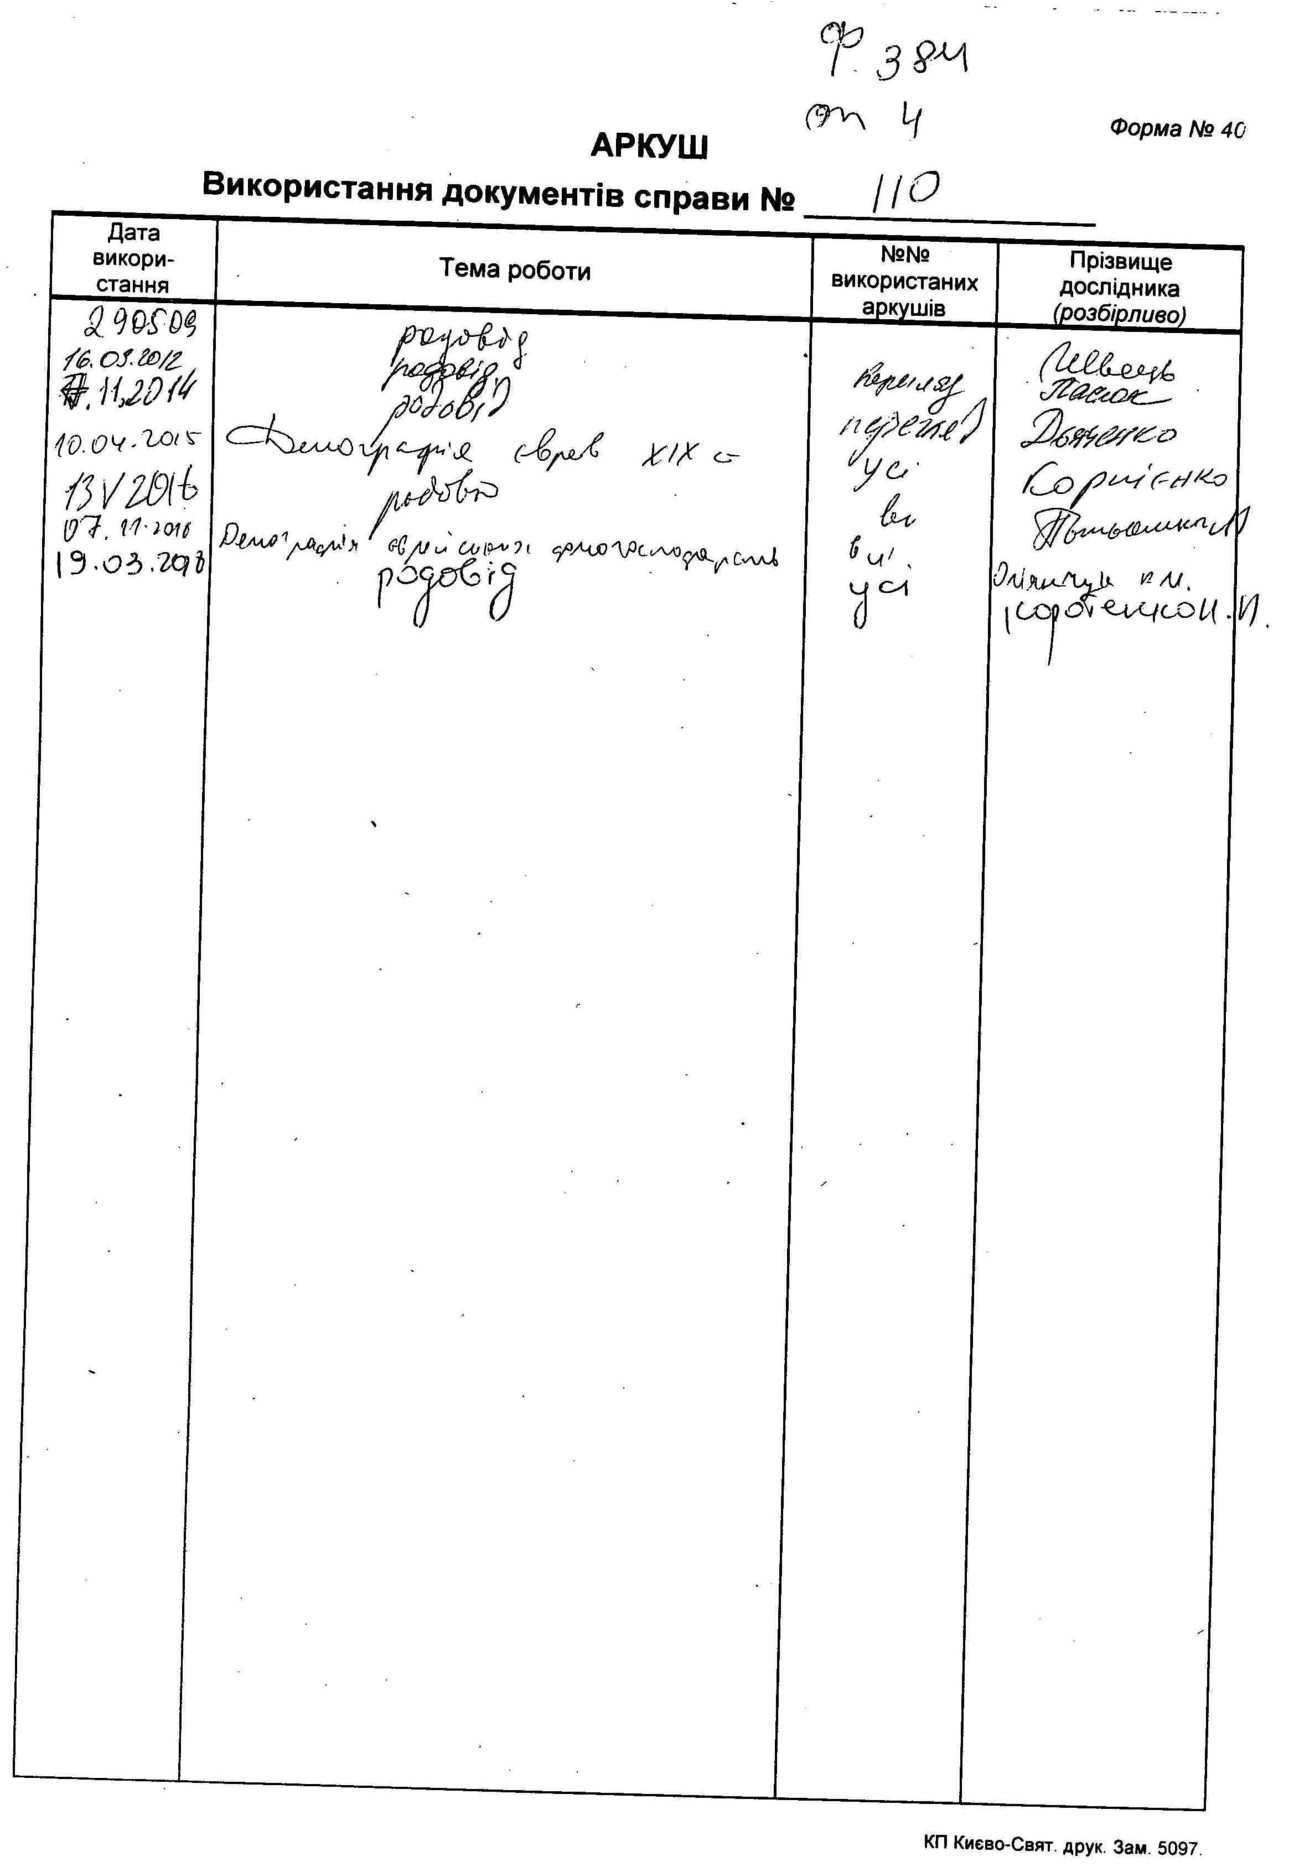 Ф. 384
оп 4
Форма № 40
АРКУШ
Використання документів справи № 110
Дата використання
Тема роботи
№№ використаних аркушів
Прізвище дослідника (розбірливо)
290509 родовід Швець
16.03.2012 родовід перегляд Пасюк
.11.2014 родовід перегляд Дьяченко
10.04.2015 Демографія євреїв XIX ст усі Корнієнко
13 V 2016 родовід всі
07.11.2016 Демографія єврейських домогосподарств всі
19.03.2018 родовід усі Коротенко Н.И.
КП Києво-Свят. друк. Зам. 5097.